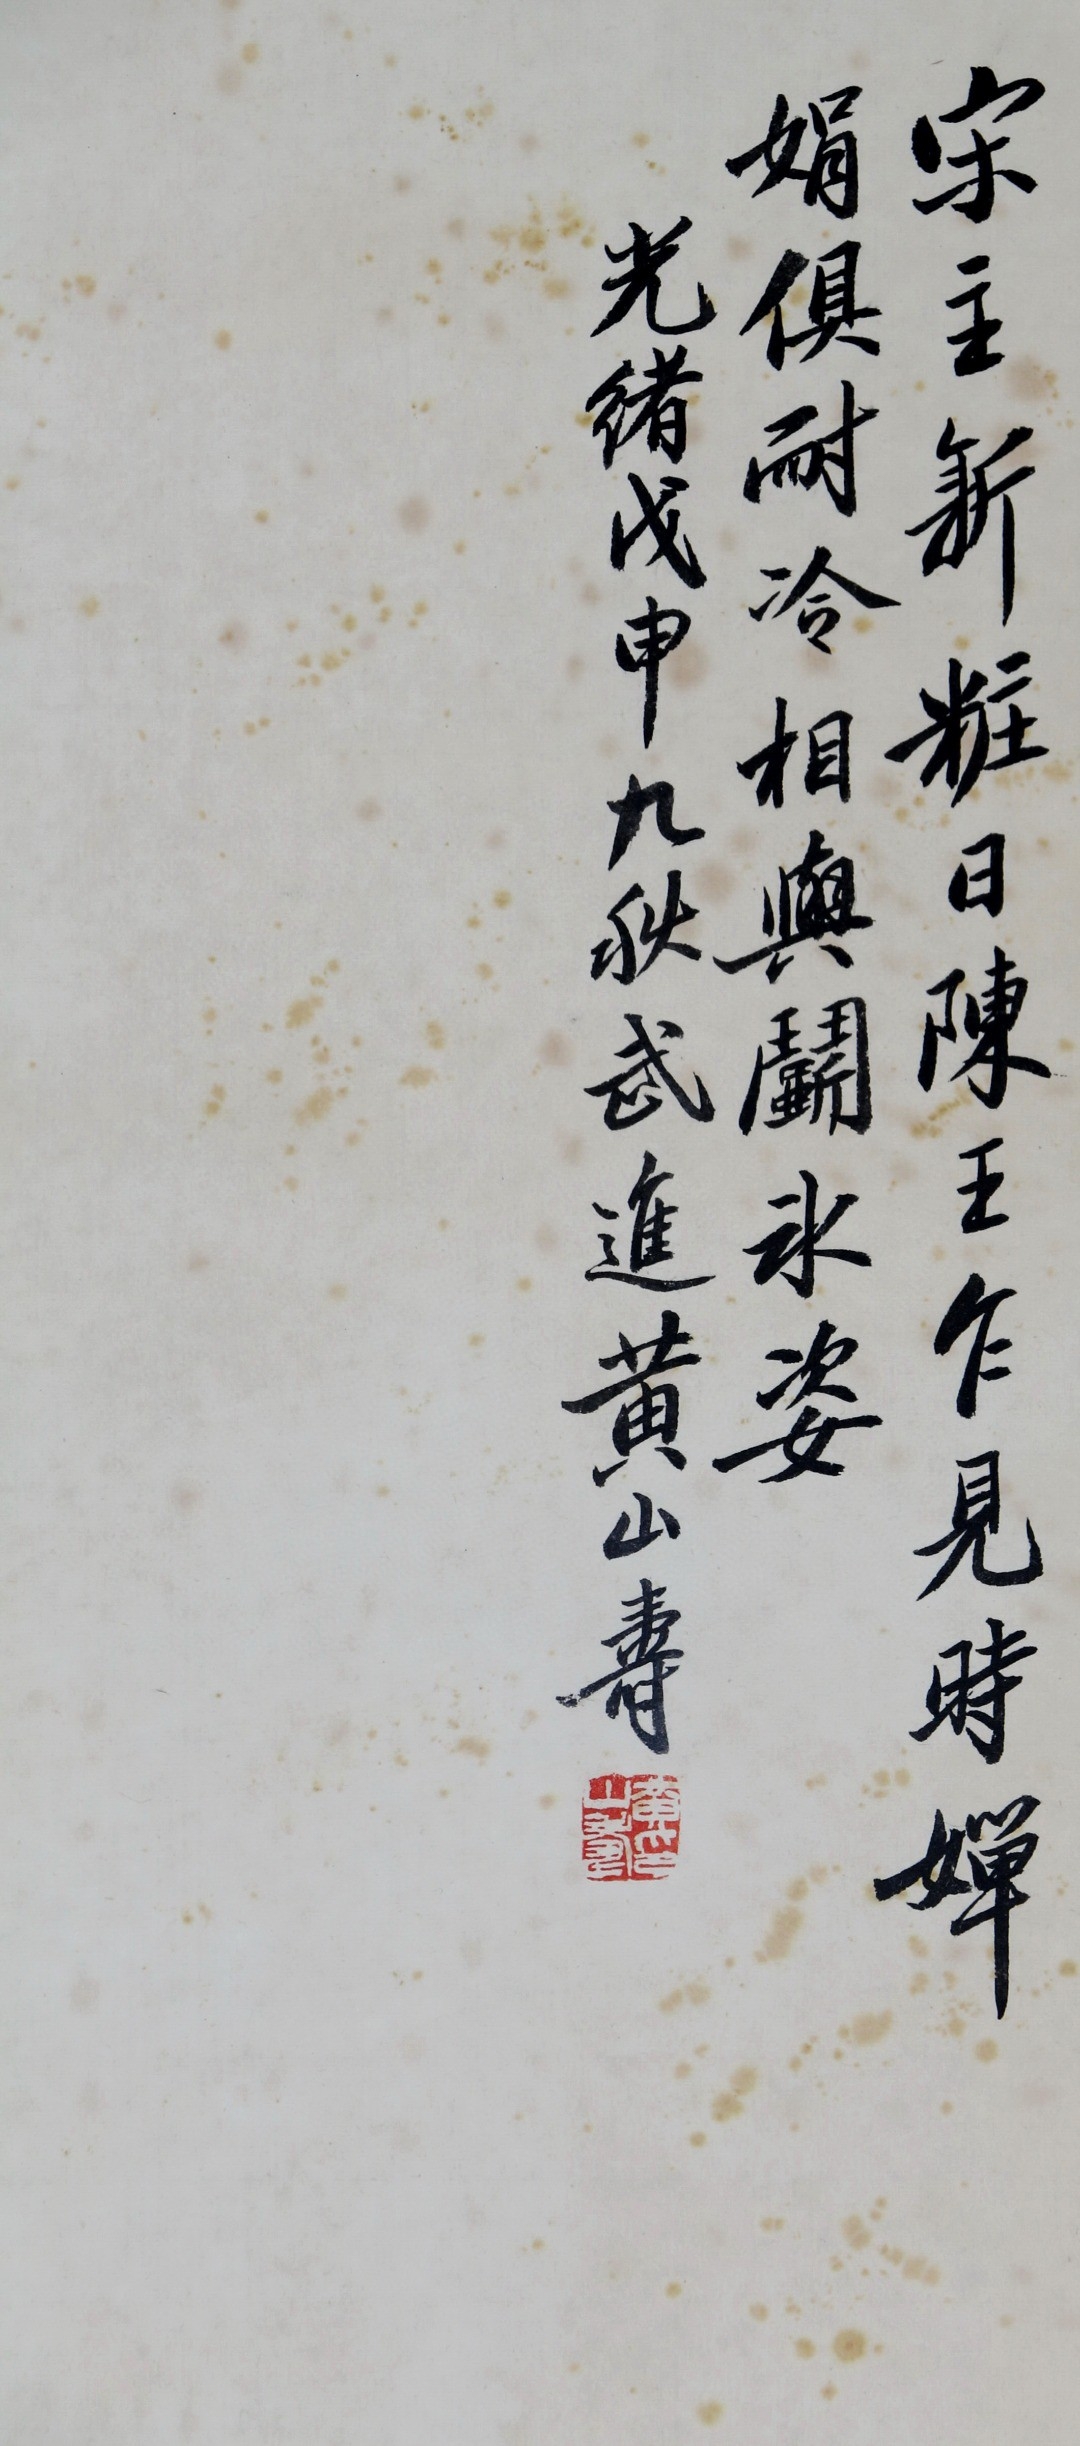 宋主新粧日陳王乍見時嬋
娟俱耐冷相與鬭氷姿
光緒戊申九秋武進黃山壽
黃山壽印